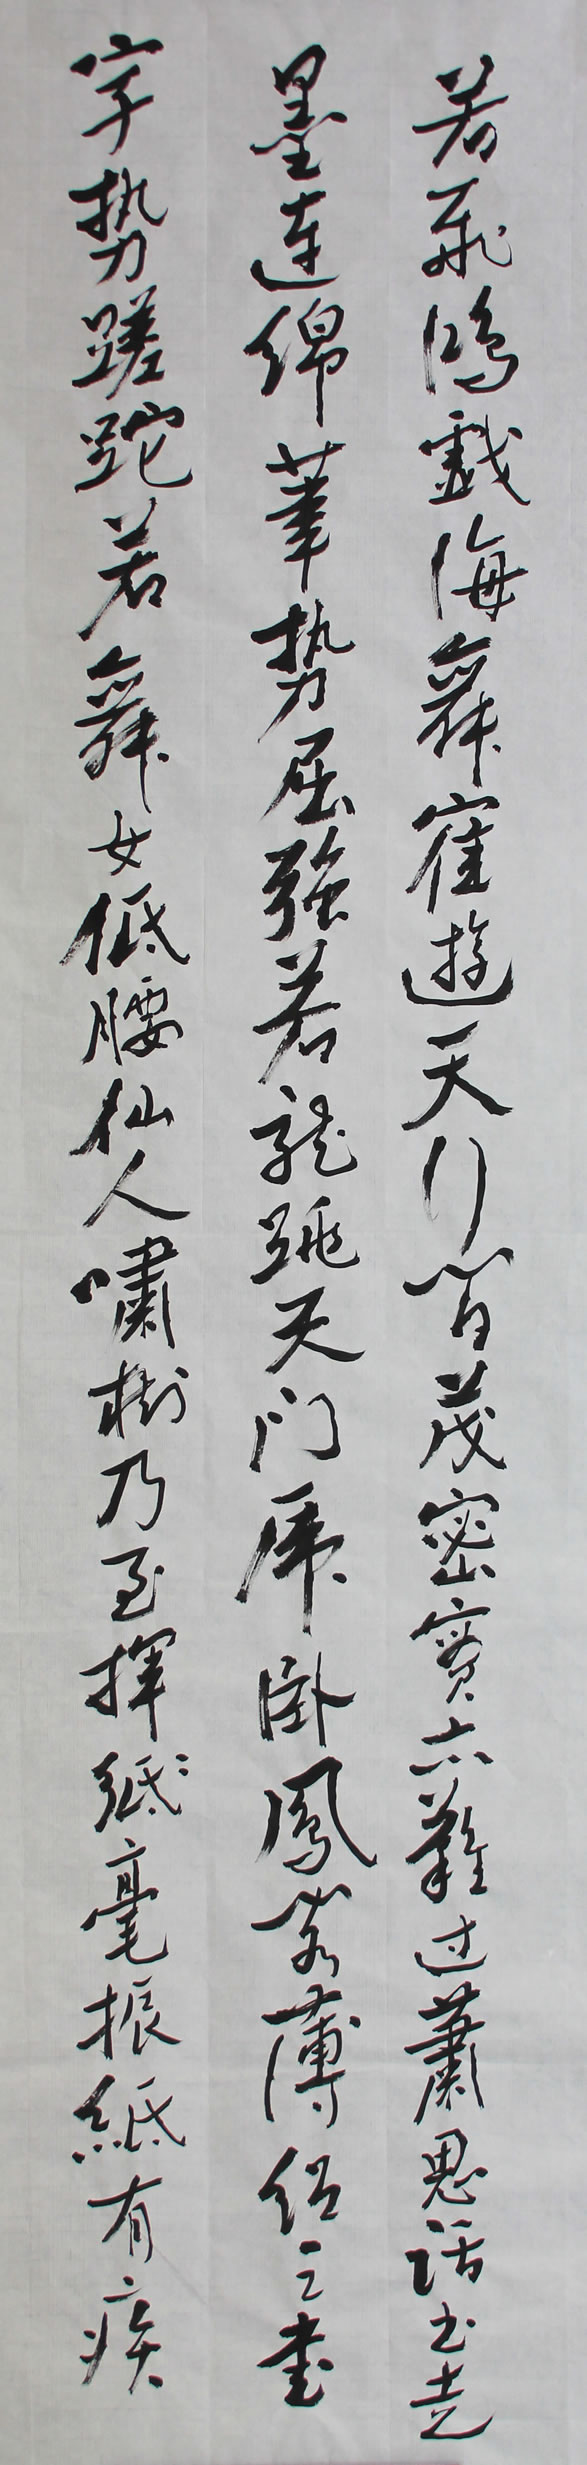 若飛鴻戲海舞隺遊天行間茂密實亦難过蕭思話书走
墨連綿筆势屈強若龍跳天门虎卧鳳闕薄紹之書
字势蹉跎若舞女低腰仙人嘯樹乃至揮紙毫振紙有疾